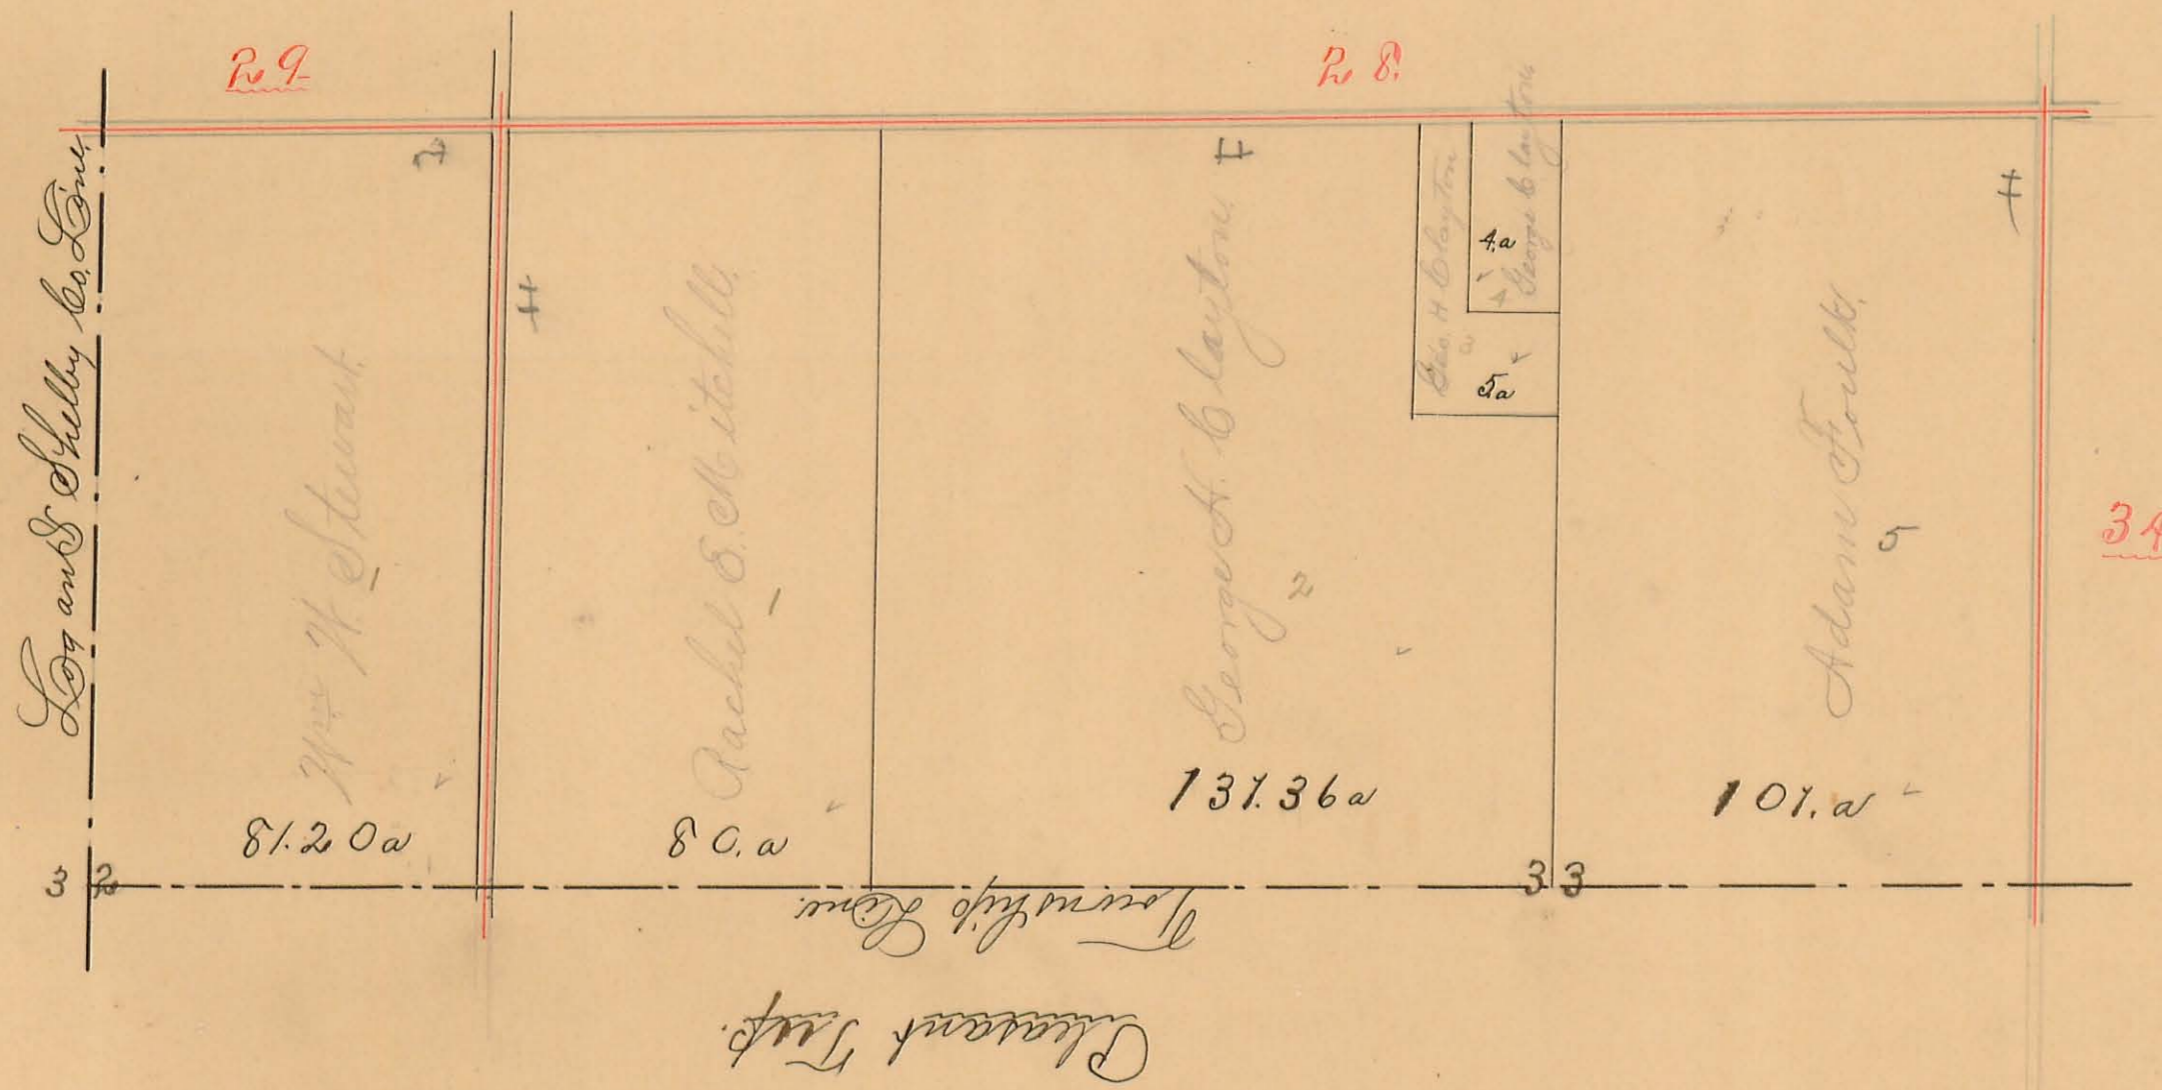 29
28.
34
Log and Shelby Co. Line.
Wm W. Stewart.
81.20a
Rachel E. Mitchell.
80.a
George H. Clayton.
2
137.36a
Geo. H Clayton
3
5a
George Clayton
4
4.a
Adam Foulk.
5
107.a
32
33
Township Line.
Pleasant Twp.